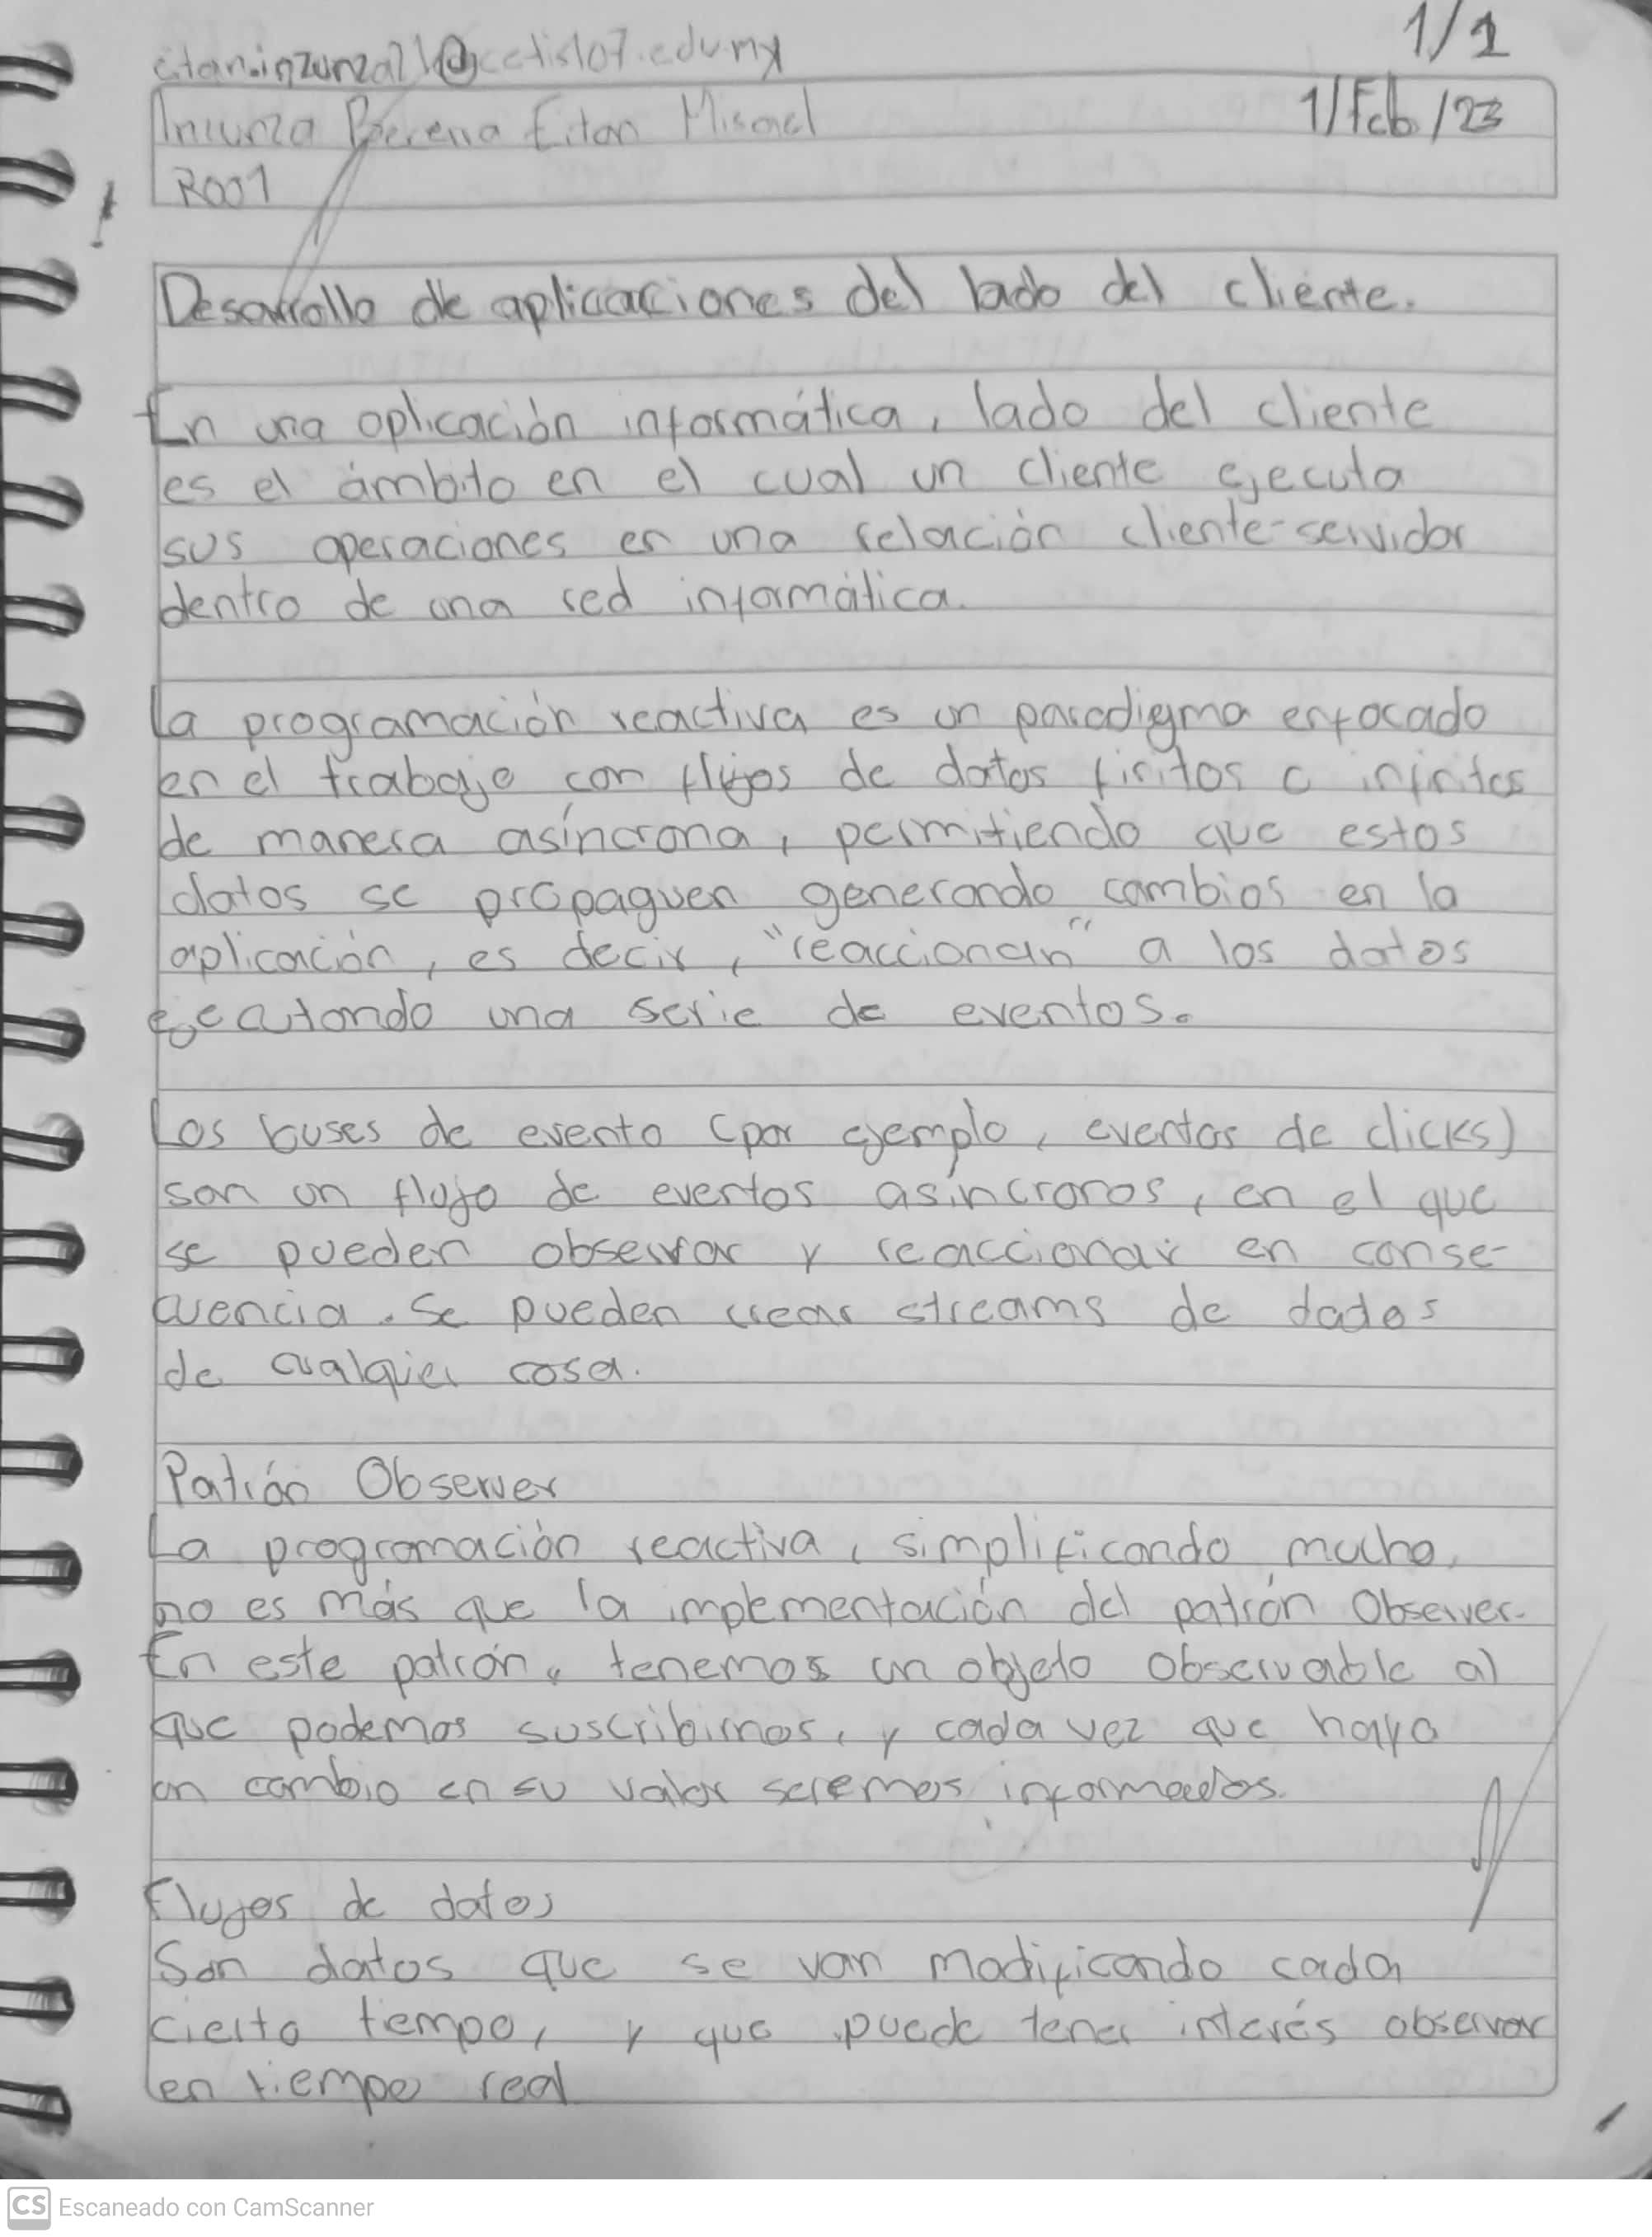 1/1
eitan.inzunza21@cetis107.edu.mx
Eitan Misael
1/Feb/23
R001
Desarrollo de aplicaciones del lado del cliente.
En una aplicación informática, lado del cliente
es el ámbito en el cual un cliente ejecuta
sus operaciones en una relación cliente-servidor
dentro de una red informática.
La programación reactiva es un paradigma enfocado
en el trabajo con flujos de datos finitos o infinitos
de manera asíncrona, permitiendo que estos
datos se propaguen generando cambios en la
aplicación, es decir, "reaccionan" a los datos
ejecutando una serie de eventos.
Los buses de evento (por ejemplo, eventos de clicks)
son un flujo de eventos asíncronos, en el que
se pueden observar y reaccionar en conse-
cuencia. Se pueden crear streams de dados
de cualquier cosa.
Patrón Observer
La programación reactiva, simplificando mucho,
no es más que la implementación del patrón Observer.
En este patrón, tenemos un objeto Observable al
que podemos suscribirnos, y cada vez que haya
un cambio en su valor seremos informados.
Flujos de datos
Son datos que se van modificando cada
cierto tiempo, y que puede tener interés observar
en tiempo real
CS Escaneado con CamScanner